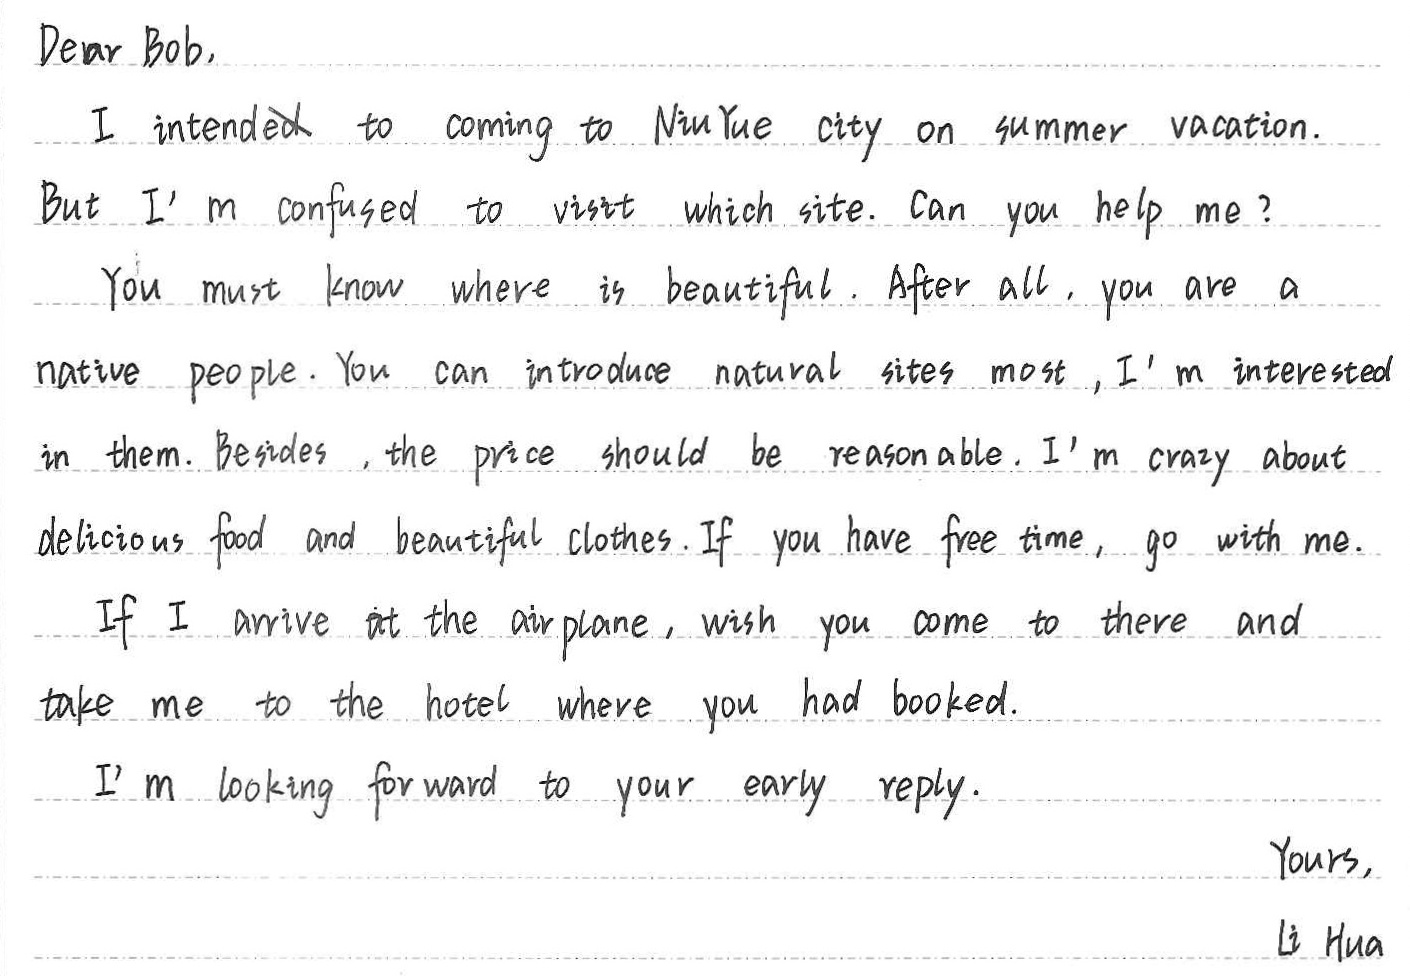 Dear Bob,
I intend to coming to NiuYue city on summer vacation.
But I'm confused to visit which site. Can you help me?
You must know where is beautiful. After all, you are a
native people. You can introduce natural sites most, I'm interested
in them. Besides, the price should be reasonable. I'm crazy about
delicious food and beautiful clothes. If you have free time, go with me.
If I arrive at the airplane, wish you come to there and
take me to the hotel where you had booked.
I'm looking forward to your early reply.
Yours,
Li Hua